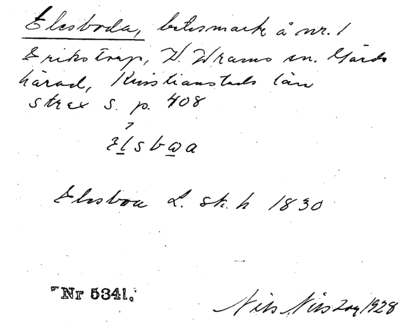 Elsboda, betesmark å nr. 1
Erikstorp, V. Wrams sn. Gärds
härad, Kristianstads län
strax s. p. 408
Elsbωa
Elsboa L. sk. h 1830
"Nr 5341.
Nils Nilsson 1928